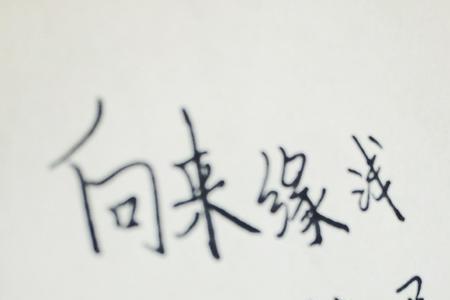 向来缘浅